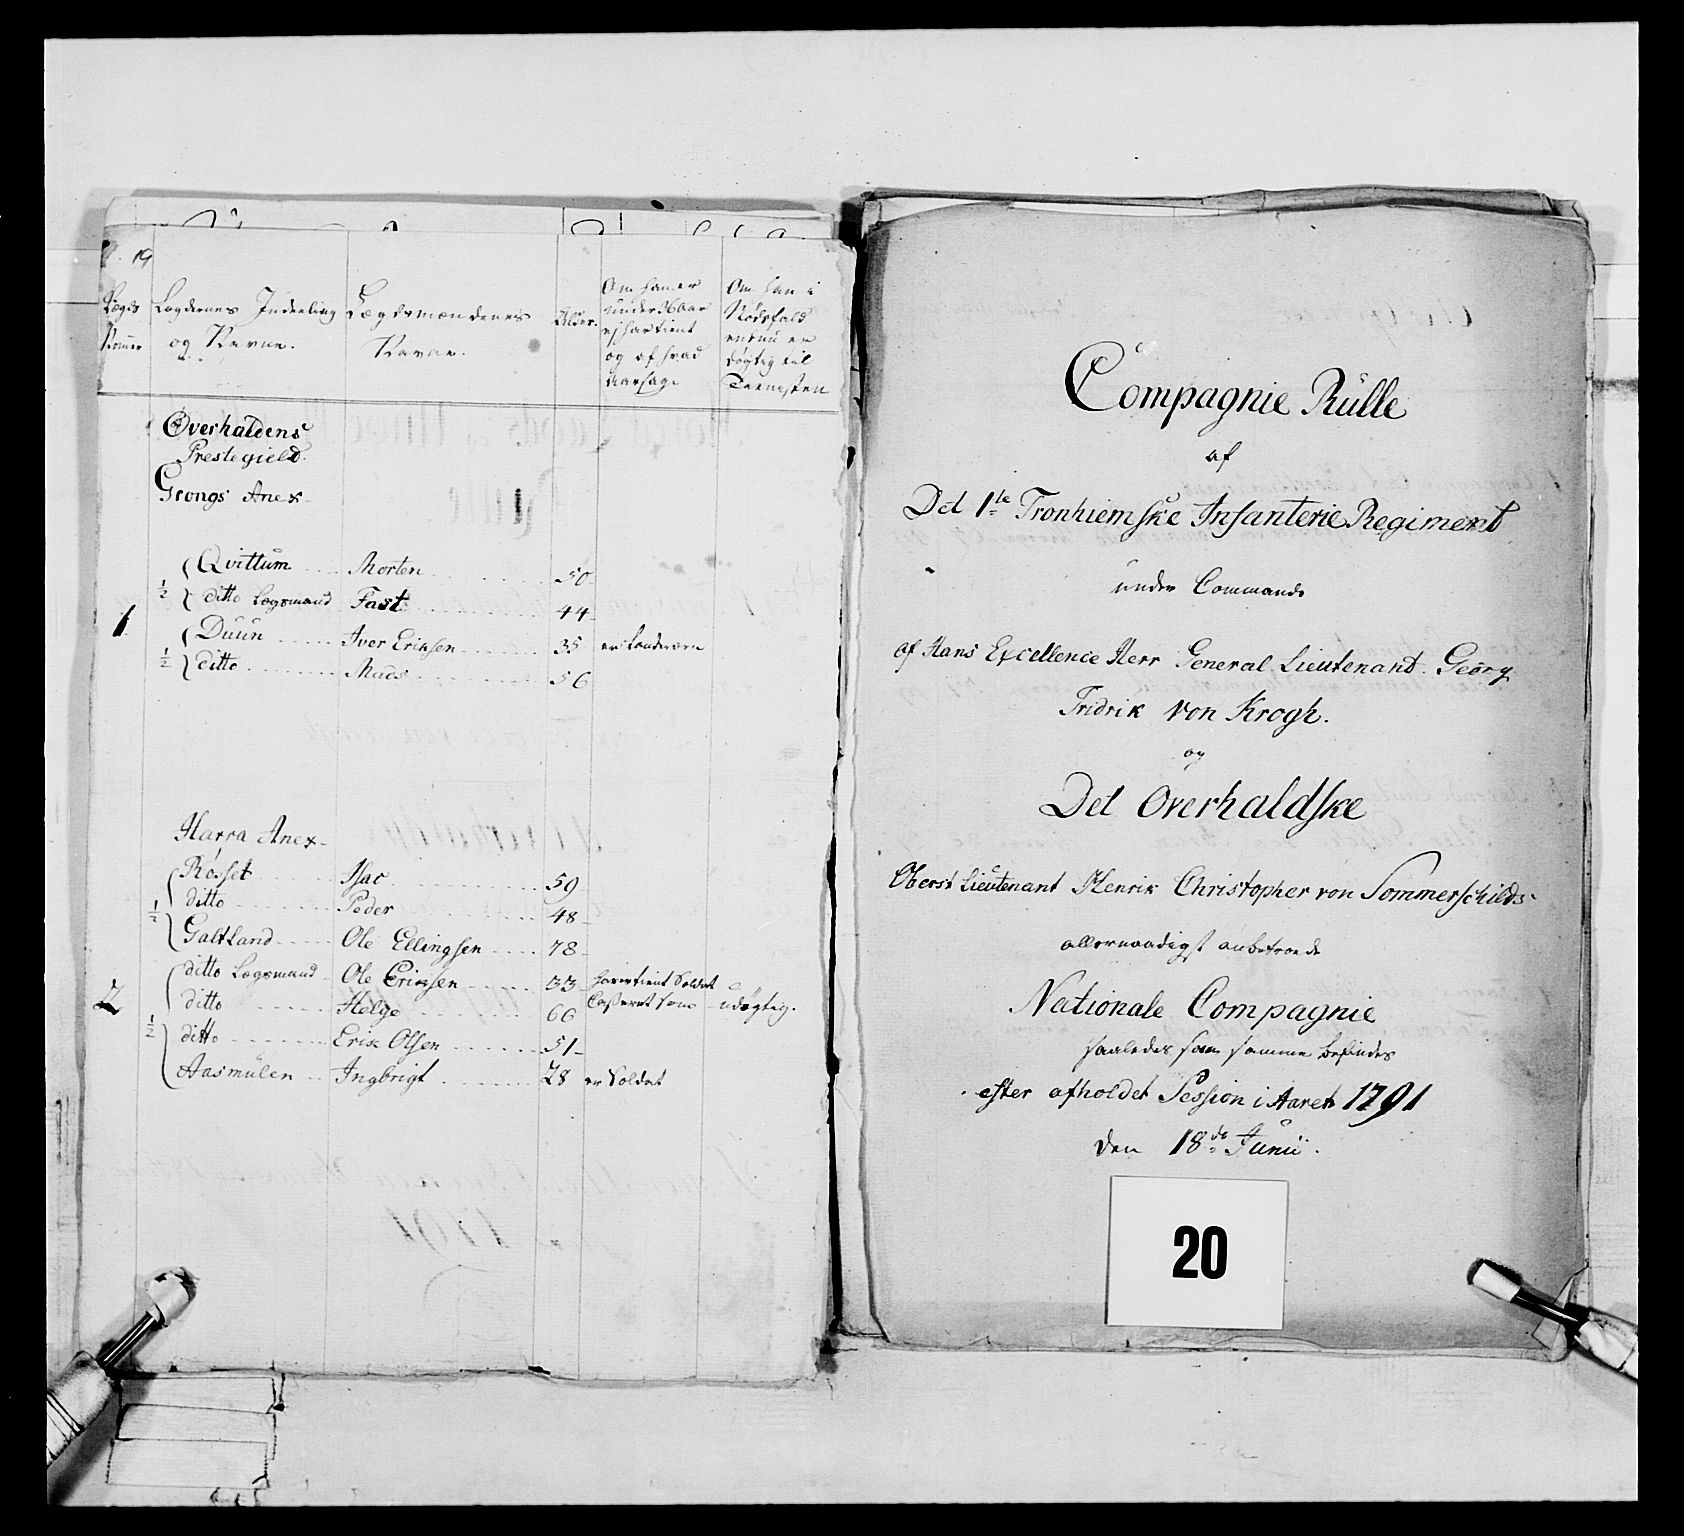 19
Lægds Nummer
Lægdernes Indeeling og Navne.
Lægdsmændenes Navne.
Alder.
Om han er under 36 Aar ej har tient og af hvad Aarsag
Om han i Nødsfald endnu er døgtig til Tienesten
Overhaldens
Prestegield.
Grongs Anex
1
½ Qvittum Morten 50
ditto Lægsmand Fast 44
½ Duun Iver Eriksen 35 er Landværn
ditto Mads 56
Harra Anex
½ Røsset Isac 59
ditto Peder 48
Galtland Ole Ellingsen 78
2
½ ditto Lægsmand Ole Eriksen 33 har tient Soldat
ditto Helge 66 Casseret som udøgtig.
ditto Erik Olsen 51
Aasmulen Ingbrigt 28 er Soldat
Compagnie Rulle
af
Det 1te Tronhiemske Infanterie Regiment
under Commando
af Hans Excellence Herr General Lieutenant Georg
Fridrik von Krogh.
og
Det Overhaldske
Oberst Lieutenant Henrik Christopher von Sommerschilds
allernaadigst anbetroede
Nationale Compagnie
saaledes som samme befindes
efter afholdet Session i Aaret 1791
den 18de Junii.
20